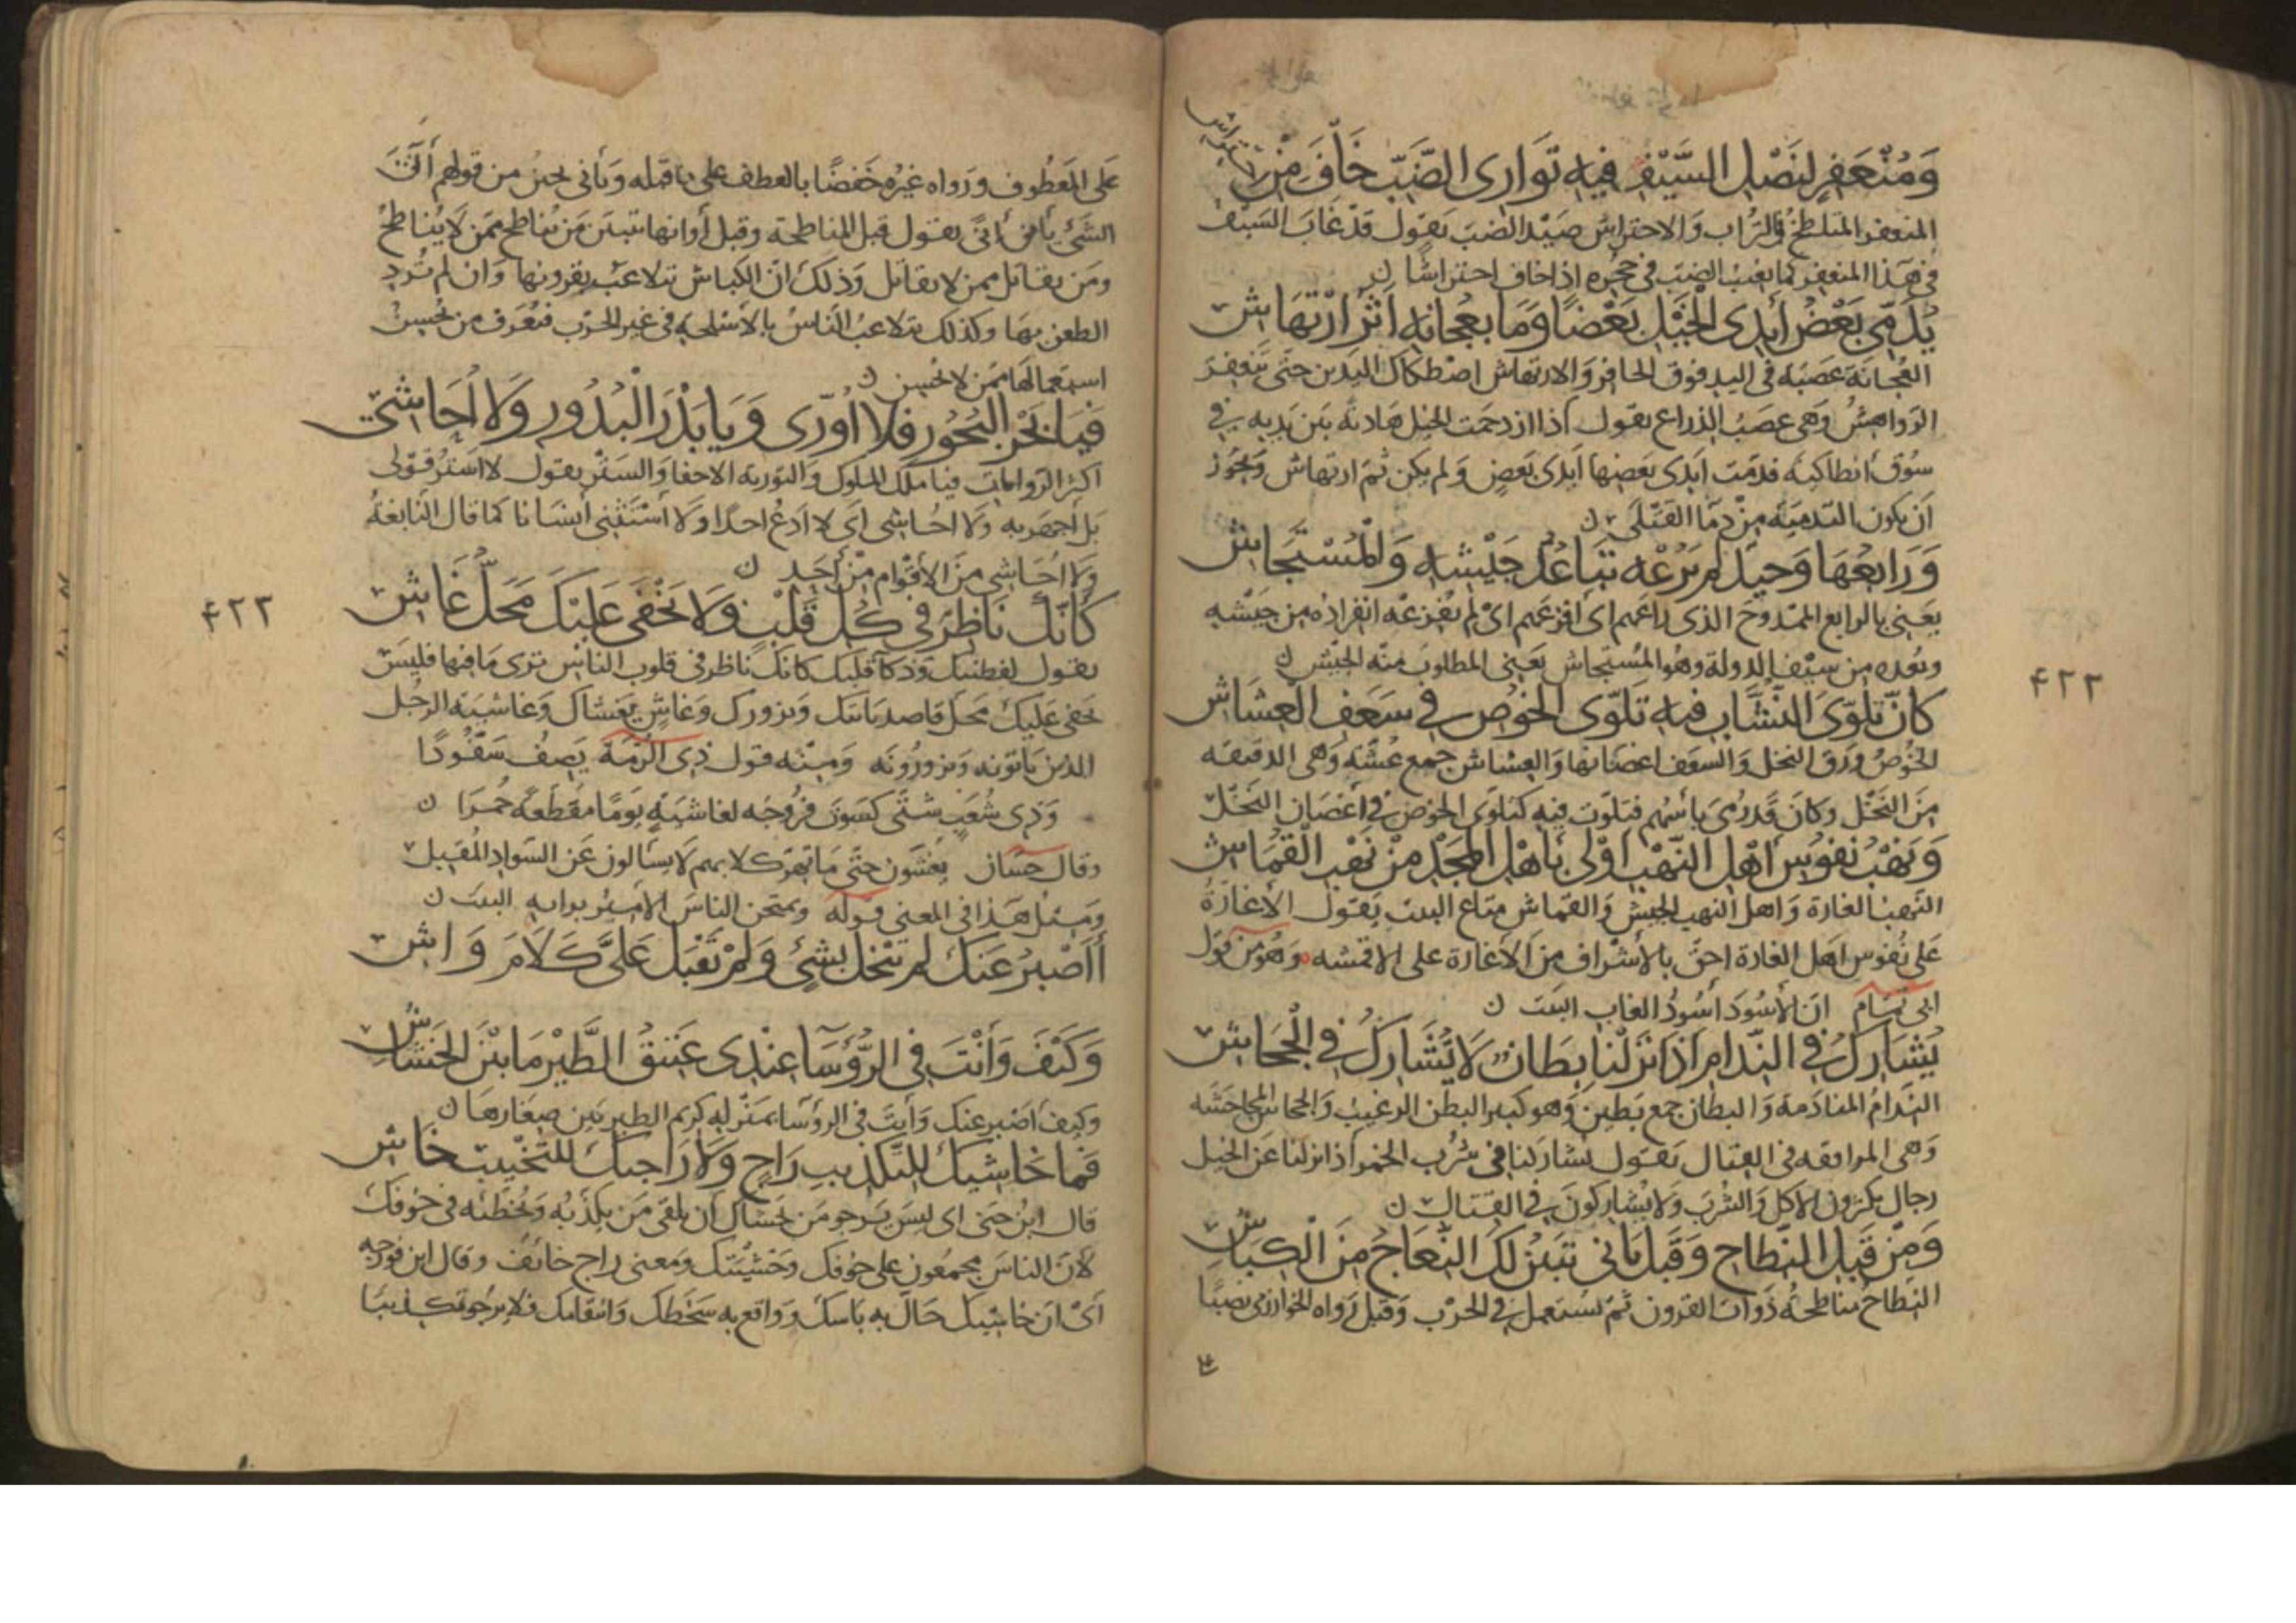 وَمُنْعَفِرٍ لِنَصْلِ السَّيْفِ فِيهِ تَوَارِى الضَّبِّ خَافَ مِنِ احْتِرَاشِ
المنعفر المتلطخ بالتراب والاحتراش صيد الضب يقول قد غاب السيف
في هذا المنعفر كما يغيب الضب في جحره اذا خاف احتراشا ن
يُدَمِّي بَعْضُ أَيْدِي الْخَيْلِ بَعْضًا وَمَا بِعُجَايَةٍ أَثَرُ ارْتِهَاشِ
العجاية عصبة في اليد فوق الحافر والارتهاش اصطكاك اليدين حتى تنعقر
الرواهش وهي عصب الذراع يقول اذا ازدحمت الخيل هاربة بين يديه في
سوق انطاكية فدمت ايدى بعضها ايدى بعض ولم يكن ثم ارتهاش ويجوز
أن يكون التدمية من دما القتلى ن
وَرَائِعُهَا وَحِيدٌ لَمْ يَرُعْهُ تَبَاعُدُ جَيْشِهِ وَالْمُسْتَجَاشِ
يعني بالرايع الممدوح الذى راعهم اى افزعهم اى لم يفزعه انفراده من جيشه
وبعده من سيف الدولة وهو المستجاش يعنى المطلوب منه الجيش ن
كَأَنَّ تَلَوِّيَ النُّشَّابِ فِيهِ تَلَوِّى الْخُوصِ فِي سَعَفِ الْعِشَاشِ
الخوص ورق النخل والسعف اغصانها والعشاش جمع عشة وهى الدقيقة
من النخل وكان قد رمى بأسهم فتلوت فيه كتلوى الخوص في أغصان النخل
وَنَهْبُ نُفُوسِ أَهْلِ النَّهْبِ أَوْلَى بِأَهْلِ الْمَجْدِ مِنْ نَهْبِ الْقُمَاشِ
النهب الغارة واهل النهب الجيش والقماش متاع البيت يقول الأغارة
على نفوس اهل الغارة احق بالأشراف من الأغارة على الاقمشه وهو من قول
ابى تمام ان الأسود أسود الغاب البيت ن
يُشَارِكُ فِي النِّدَامِ إِذَا نَزَلْنَا بِطَانٌ لَا يُشَارِكُ فِي الْجِحَاشِ
الندام المنادمة والبطان جمع بطين وهو كبير البطن الرغيب والجحاش المجاحشة
وهى المدافعه في القتال يقول يشاركنا في شرب الخمر اذا نزلنا عن الخيل
رجال يكثرون الأكل والشرب ولا يشاركون في القتال ن
وَمِنْ قَبْلِ النِّطَاحِ وَقَبْلِ يَأْنِي تَبِينُ لَكَ النِّعَاجُ مِنَ الْكِبَاشِ
النطاح مناطحة ذوات القرون ثم يستعمل في الحرب وقبل رواه الخوارزمى نصبا
٤٢٢
على المعطوف ورواه غيره خفضا بالعطف على ما قبله ويأنى يحين من قولهم أنى
الشئ يأنى أنى يقول قبل المناطحة وقبل أوانها تتبين من يناطح ممن لا يناطح
ومن يقاتل ممن لا يقاتل وذلك ان الكباش تتلاعب بقرونها وان لم ترد
الطعن بها وكذلك يتلاعب الناس بالأسلحة في غير الحرب فيعرف من يحسن
استعمالها ممن لا يحسن ن
فَيَا بَحْرَ الْبُحُورِ فَلَا أُوَرِّى وَيَا بَدْرَ الْبُدُورِ وَلَا أُحَاشِي
اكثر الروايات فيا ملك الملوك والتورية الاخفا والستر يقول لا استر قولى
بل أجهر به ولا احاشى اى لا ادع احدا ولا أستثنى أنسانا كما قال النابغة
ولا أحاشي من الأقوام من أحد ن
كَأَنَّكَ نَاظِرٌ فِي كُلِّ قَلْبٍ وَلَا يَخْفَى عَلَيْكَ مَحَلُّ غَاشِ
يقول لفطنتك وذكآ قلبك كانك ناظر في قلوب الناس ترى ما فيها فليس
يخفى عليك محل قاصد ياتيك ويزورك وغاش يغشاك وغاشية الرجل
الذين ياتونه ويزورونه ومنه قول ذى الرمة يصف سفودا
وَذِى شُعَبٍ شَتَّى كَسَوْتُ فُرُوجَهُ لغاشية يومًا مُقَطَّعَةً حُمْرَا ن
وقال حسان يغشون حتى ما تهر كلابهم لا يسألون عن السواد المقبل
ومثل هذا في المعنى قوله ويمتحن الناس الأمير برايه البيت ن
أَأَصْبِرُ عَنْكَ لَمْ تَبْخَلْ بِشَيْءٍ وَلَمْ تَقْبَلْ عَلَيَّ كَلَامَ وَاشِ
وَكَيْفَ وَأَنْتَ فِي الرُّؤَسَاءِ عِنْدِى عَتِيقُ الطَّيْرِ مَا بَيْنَ الْخَشَاشِ
وكيف أصبر عنك وأنت في الرؤسا بمنزلة كريم الطير بين صغارها ن
فَمَا خَاشِيكَ لِلتَّكْذِيبِ رَاجٍ وَلَا رَاجِيكَ لِلتَّخْيِيبِ خَاشِ
قال ابن جنى اى ليس يرجو من يخشاك أن يلقى من يكذبه ويخطئه في خوفك
لأن الناس مجمعون على خوفك وخشيتك ومعنى راج خائف وقال ابن فورجه
أى ان خاشيك حال به باسك وواقع به سخطك وانتقامك فلا يرجو تكذيبا
٤٢٣